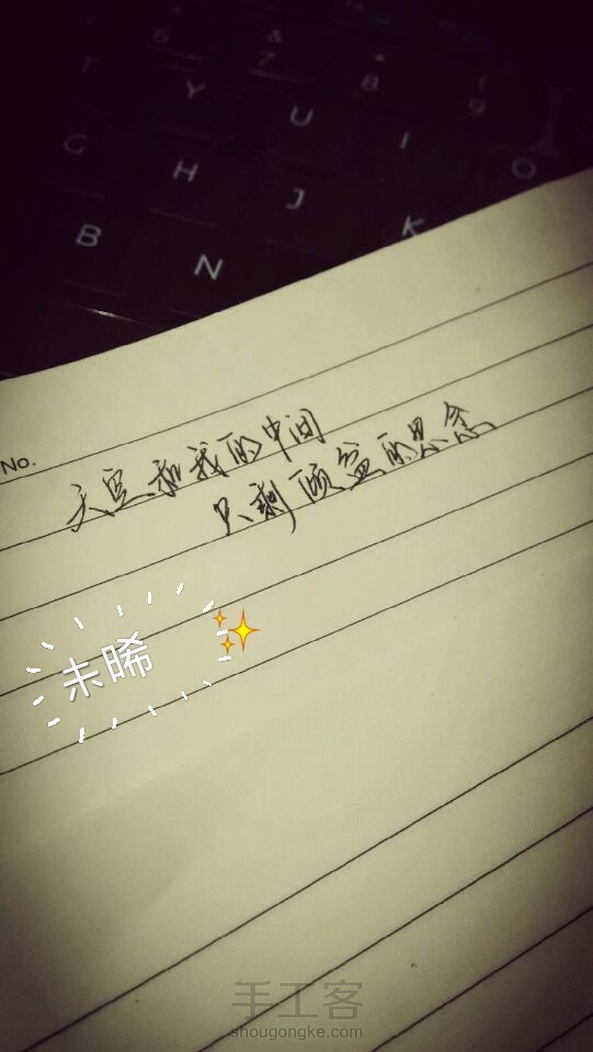 6 & 7 * 8 ( 9
T Y U I O
G H J K
B N
No.
天空和我的中间
只剩倾盆的思念
未晞
手工客
shougongke.com